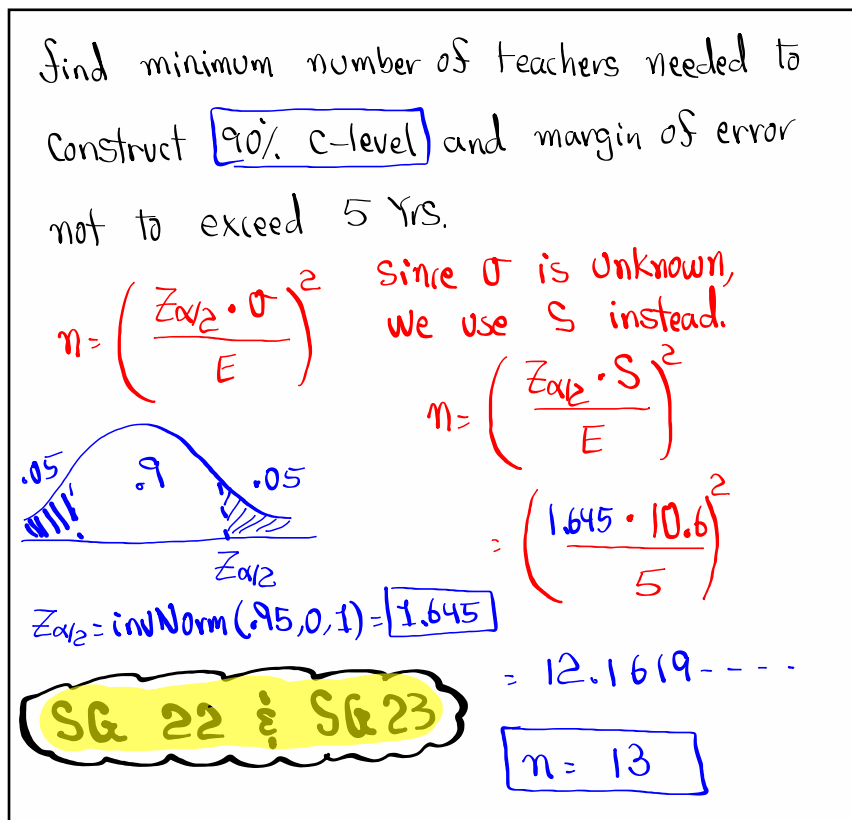 find minimum number of teachers needed to
Construct 90% C-level and margin of error
not to exceed 5 Yrs.
Since σ is unknown,
we use S instead.
n= (Zα/2 • σ / E)²
n= (Zα/2 • S / E)²
.05 .9 .05
Zα/2
= (1.645 • 10.6 / 5)²
Zα/2 = invNorm(.95,0,1) = 1.645
= 12.1619----
SG 22 & SG23
n= 13